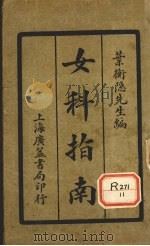 葉衡隱先生編
女科指南
上海廣益書局印行
R271
11